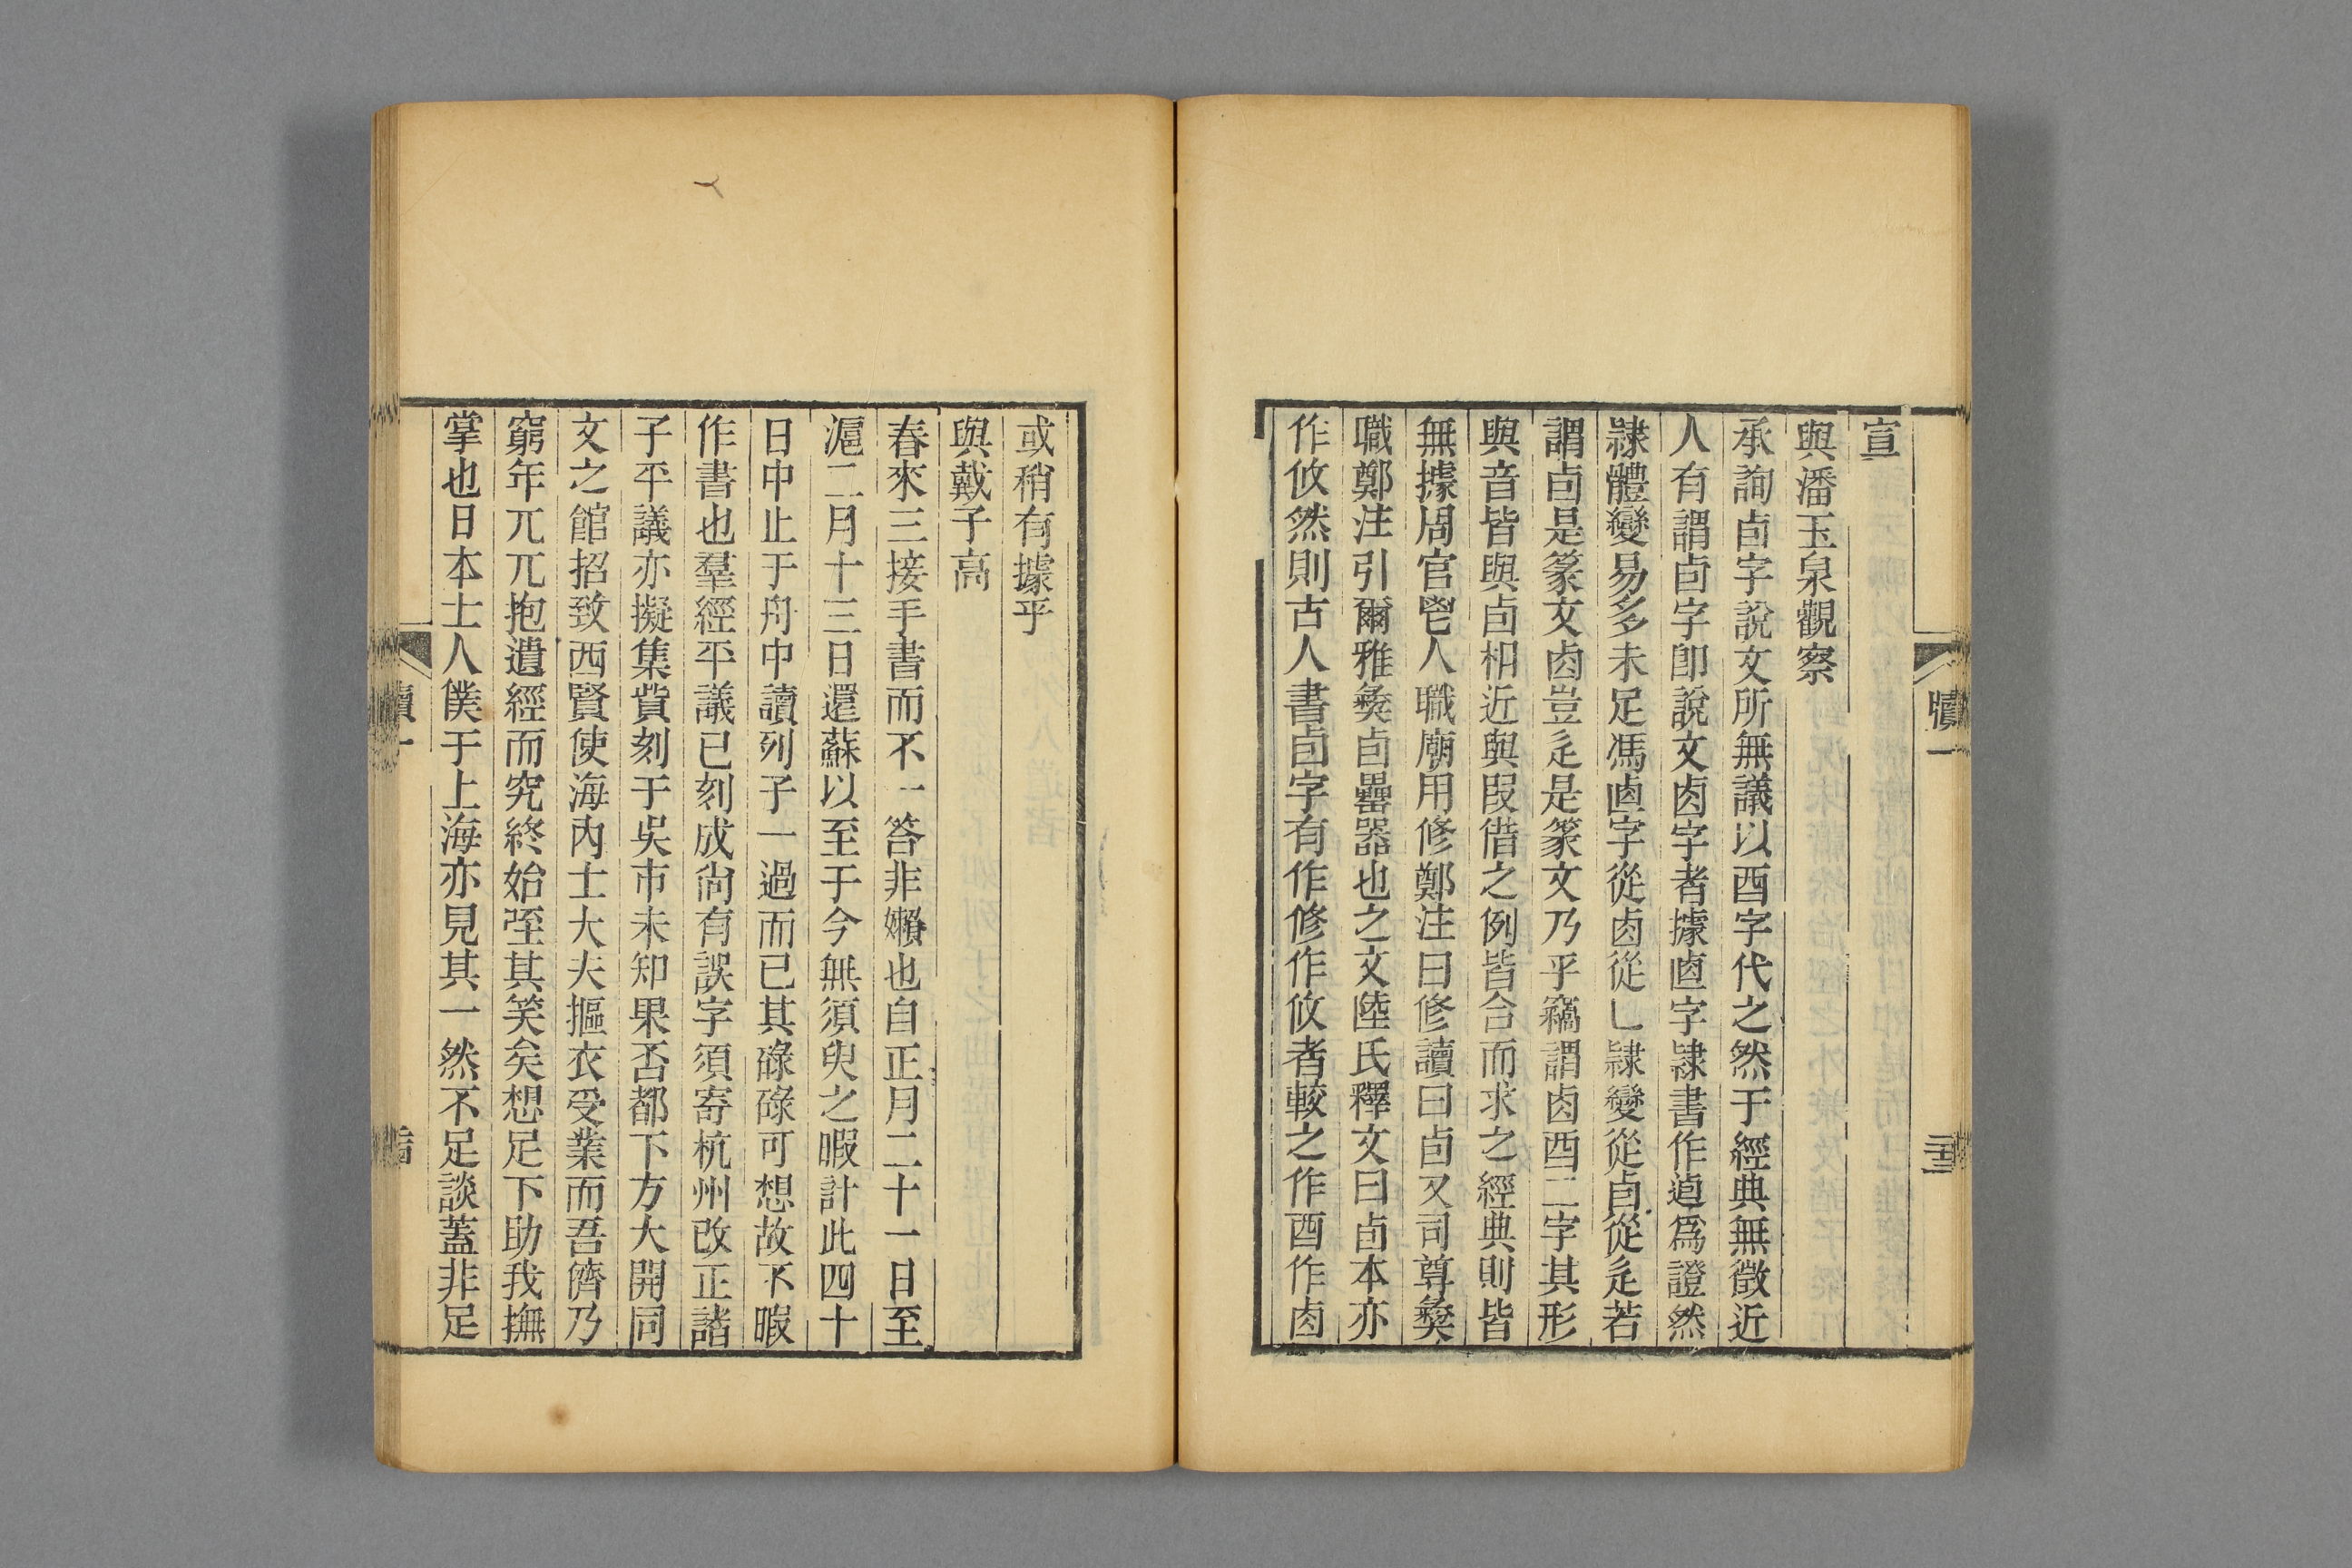 宣
與潘玉泉觀察
承詢卣字說文所無議以酉字代之然于經典無徵近
人有謂卣字卽說文卥字者據𠧴字隷書作逌爲證然
隷體變易多未足馮𠧴字從卥從乚隷變從卣從辵若
謂卣是篆文卥豈辵是篆文乃乎竊謂卥酉二字其形
與音皆與卣相近與叚借之例皆合而求之經典則皆
無據周官鬯人職廟用修鄭注曰修讀曰卣又司尊彝
職鄭注引爾雅彝卣罍器也之文陸氏釋文曰卣本亦
作攸然則古人書卣字有作修作攸者較之作酉作卥
牘一
或稍有據乎
與戴子高
春來三接手書而不一答非嬾也自正月二十一日至
滬二月十三日還蘇以至于今無須臾之暇計此四十
日中止于舟中讀列子一過而已其碌碌可想故不暇
作書也羣經平議已刻成尙有誤字須寄杭州改正諸
子平議亦擬集貲刻于吳市未知果否都下方大開同
文之館招致西賢使海內士大夫摳衣受業而吾儕乃
窮年兀兀抱遺經而究終始咥其笑矣想足下助我撫
掌也日本士人僕于上海亦見其一然不足談蓋非足